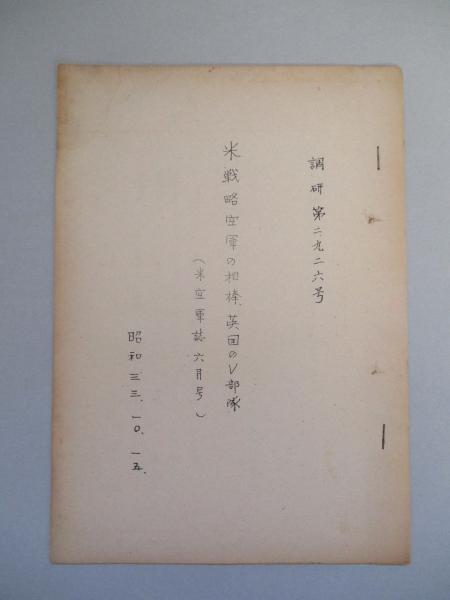 調研第二九二六号
米戦略空軍の相棒、英国のV部隊
(米空軍誌六月号)
昭和三三、一〇、一五、